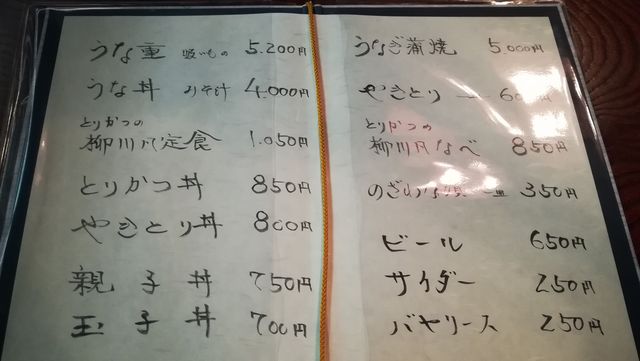 うな重 吸いもの 5.200円
うな丼 みそ汁 4.000円
とりかつの
柳川風定食 1.050円
とりかつ丼 850円
やきとり丼 800円
親子丼 750円
玉子丼 700円
うなぎ蒲焼 5.000円
やきとり 一
とりかつの
柳川風なべ 850円
のざわな漬 一皿 350円
ビール 650円
サイダー 250円
バヤリース 250円